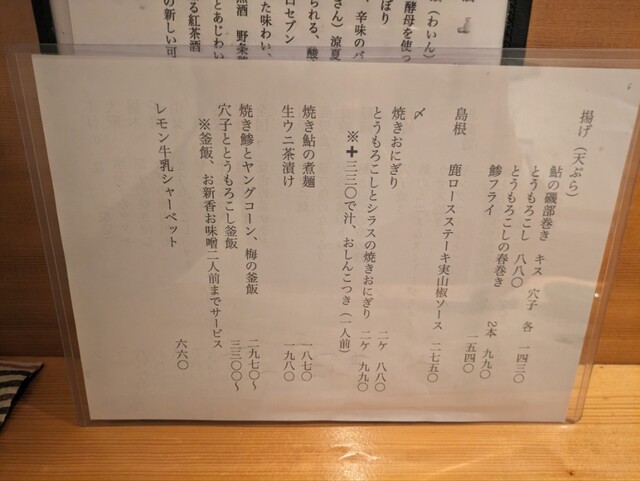 揚げ（天ぷら）
鮎の磯部巻き　キス　穴子　各　一四三〇
とうもろこし　八八〇
とうもろこしの春巻き　2本　九九〇
鯵フライ　一五四〇
島根　鹿ロースステーキ実山椒ソース　二七五〇
〆
焼きおにぎり　二ヶ　八八〇
とうもろこしとシラスの焼きおにぎり　二ヶ　九九〇
※✚三三〇で汁、おしんこつき（一人前）
焼き鮎の煮麺　一八七〇
生ウニ茶漬け　一九八〇
焼き鯵とヤングコーン、梅の釜飯　二九七〇〜
穴子ととうもろこし釜飯　三三〇〇〜
※釜飯、お新香お味噌二人前までサービス
レモン牛乳シャーベット　六六〇
（わいん）
酵母を使っ
ぼり
辛味のバ
さん）涼夏
られる、酸
ロセブン
た味わい、
とあじわい
る紅茶酒
の新しい可